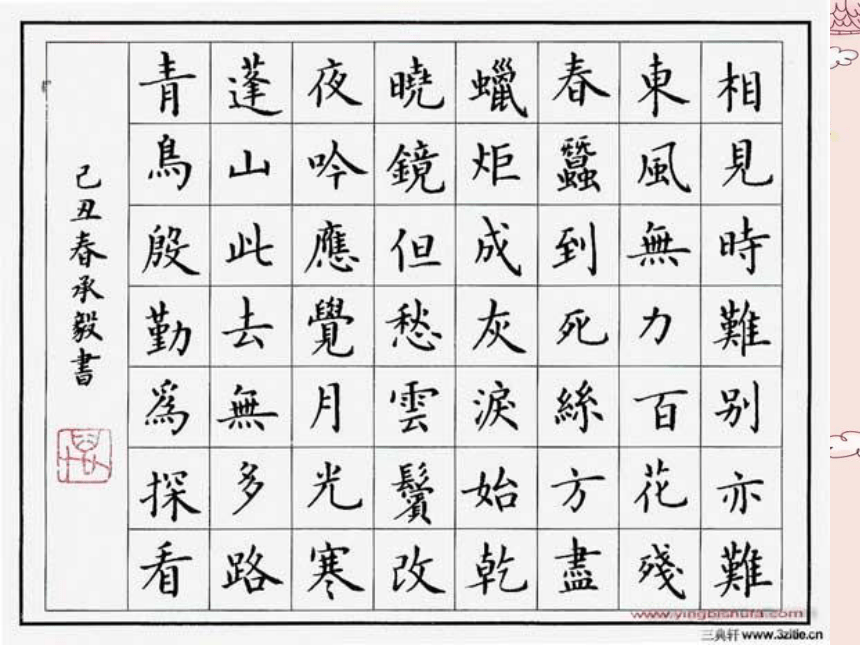 相見時難别亦難
東風無力百花殘
春蠶到死絲方盡
蠟炬成灰淚始乾
曉鏡但愁雲鬢改
夜吟應覺月光寒
蓬山此去無多路
青鳥殷勤為探看
己丑春承毅書
www.yingbishufa.com
三典轩 www.3zitie.cn